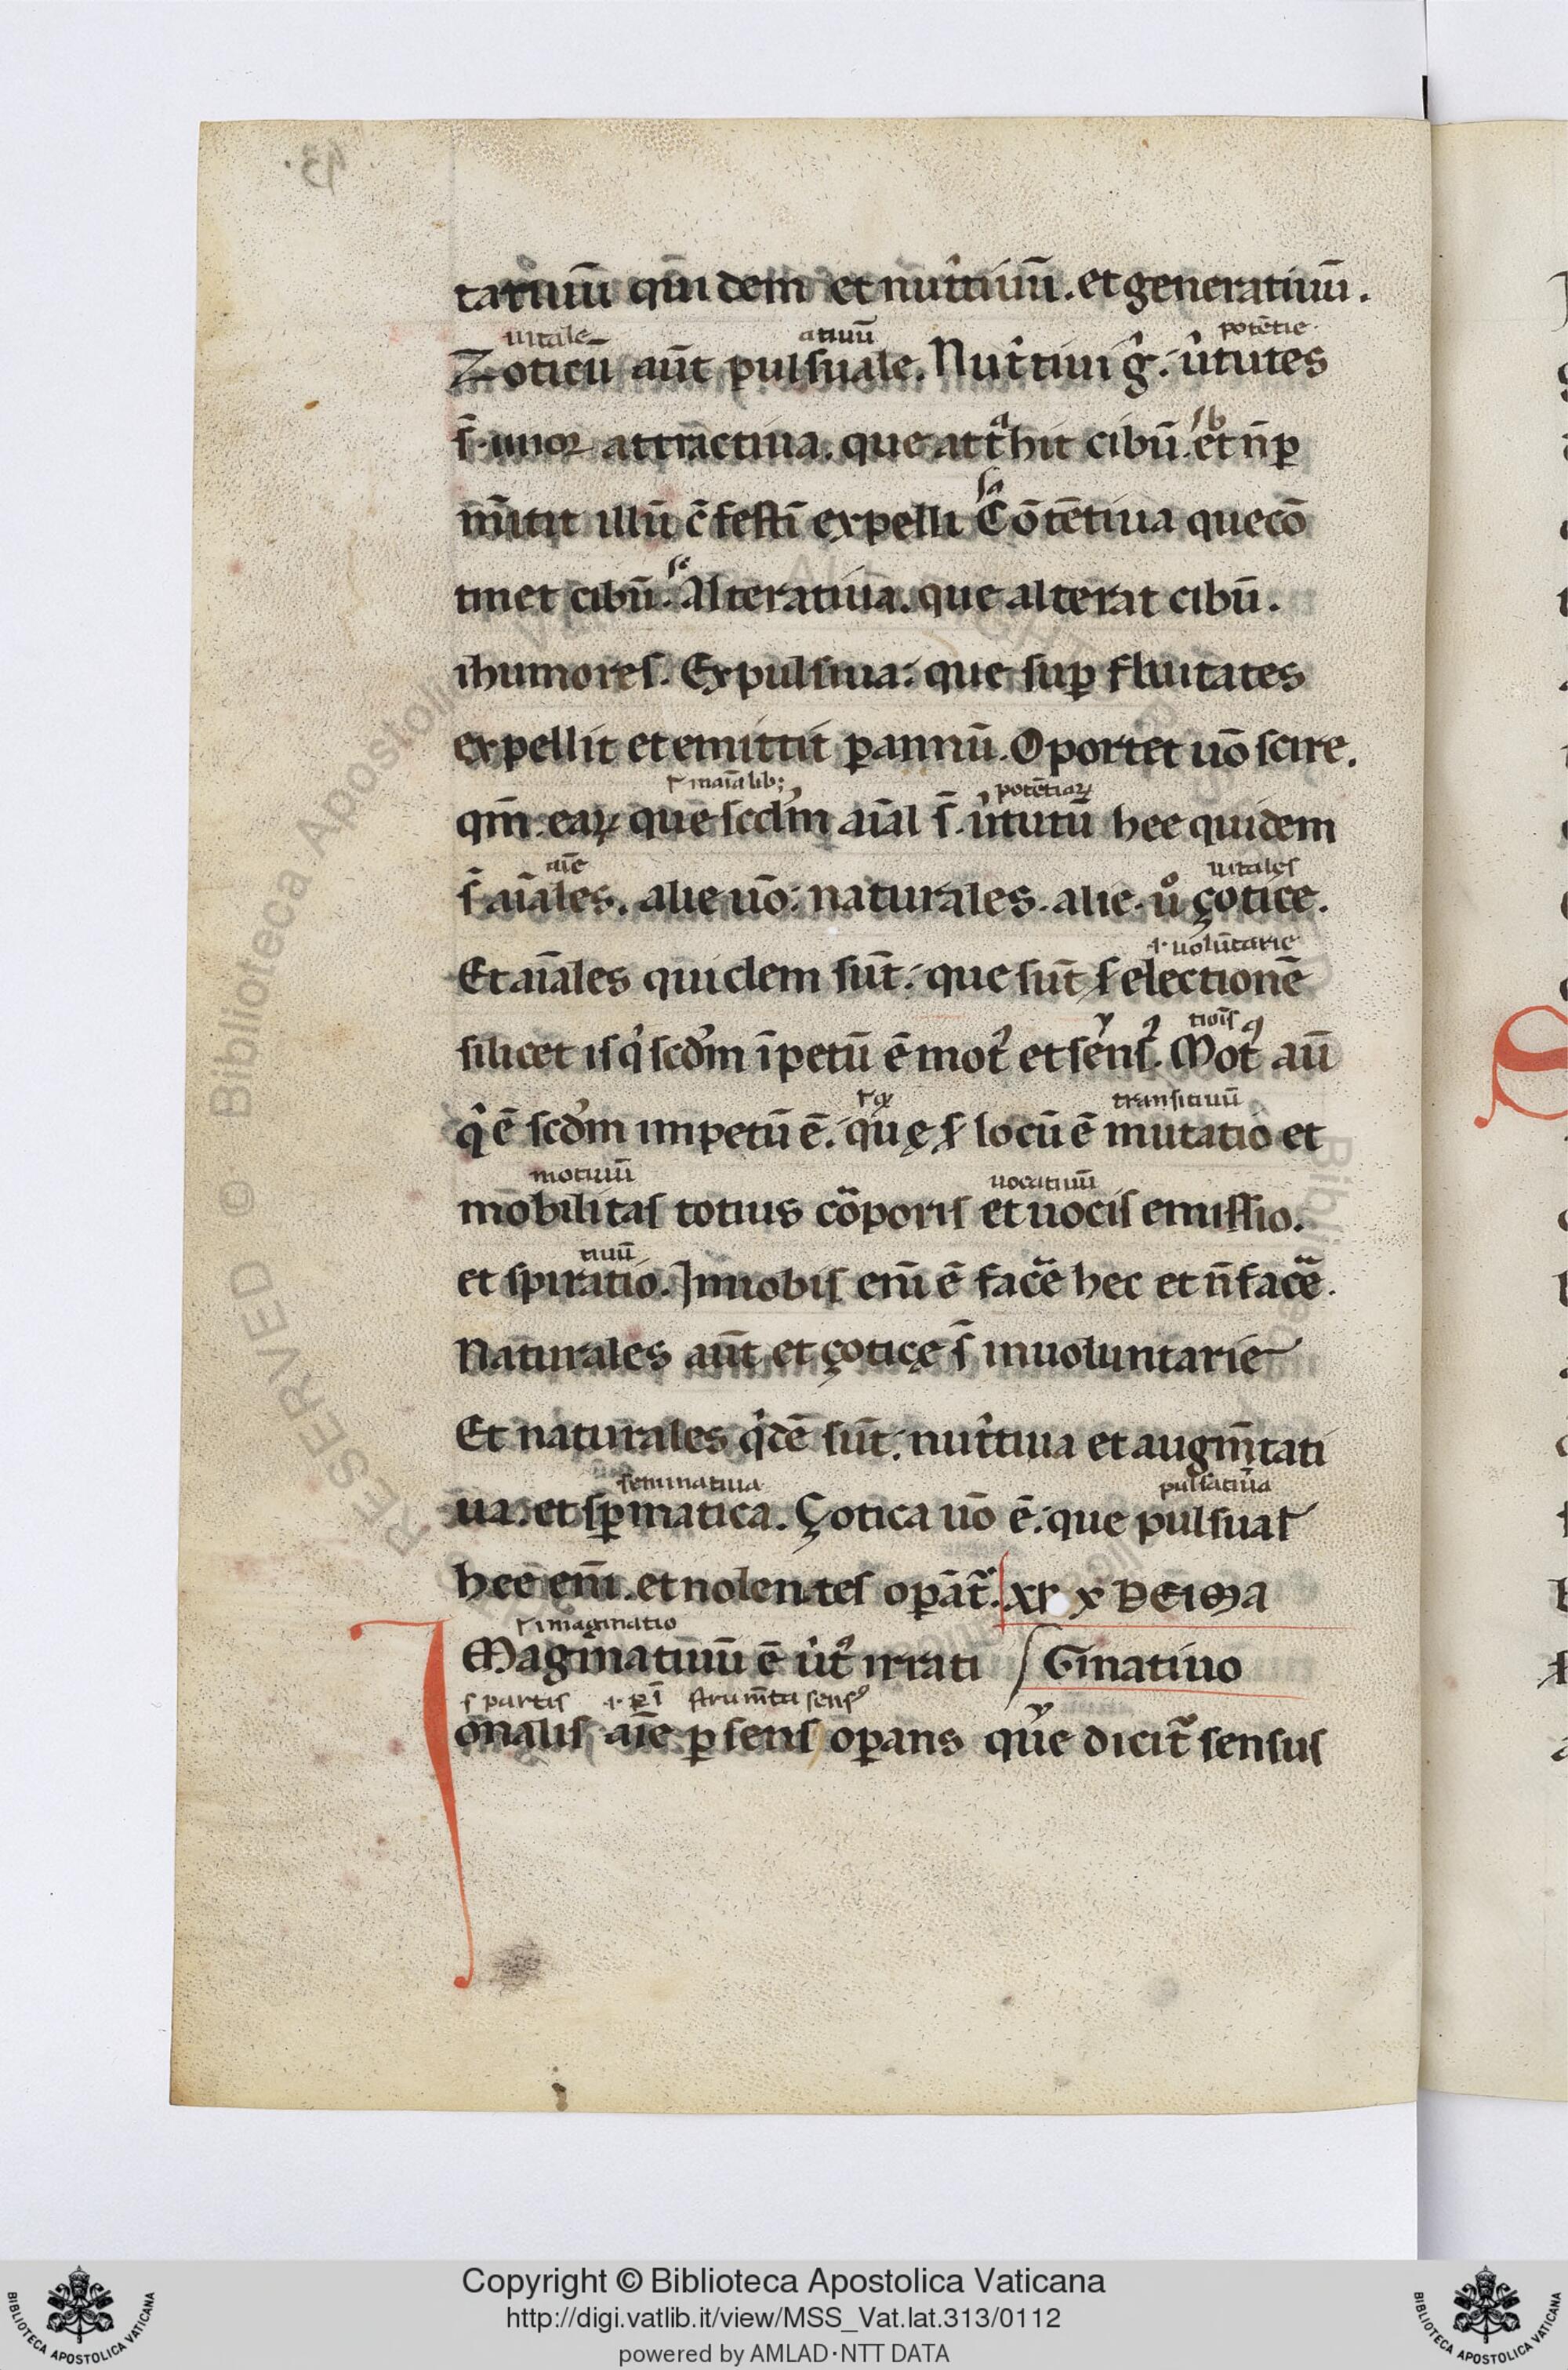 tatiuū quidem et nut̂tiuū. et generatiuū.
uitale atiuū potētie
Zoticū aūt pulsuale. Nut̂tiui g̑. ût̂utes
s̄. iiiior attractiua. que att̾hit cibū. et n̄ ꝑ
m̄itit illū c̄festī expelli Cōtētiua que cō
tinet cibū. Alteratiua. que alterat cibū.
ihumores. Expulsiua: que suꝑ fluitates
expellit et emittit ꝑ annū. Oportet uō scire.
maīalib; potētiaꝝ
qm̄. eaꝝ que scdm̄ aīal s̄. ûtutū hee quidem
aīe uitales
s̄ aīales. alie uō: naturales. alie. u̾ çotice.
uolūtarie
Et aīales quidem sūt: que sūt s electionē
silicet is q̂ scdm̄ īpetū ē mot̾ et sens̾. Mot̾ aū
transitiuū
q̂ ē scdm̄ impetū ē. quę s locū ē mutatio et
motiuū uocatiuū
mobilitas totius corporis et uocis emissio.
tiuū
et spiratio. Innobis enī ē facē hec et n̄ facē.
Naturales aūt et çoticę s̄ inuoluntarie
Et naturales q̂dē sūt: nut̂tiua et augm̄tati
seminatiua pulsatiua
ua. et sꝑmatica. Çotica uō ē: que pulsual
hee enī. et nolentes oꝑāt̾. XI X DEIMA
imaginatio
IMaginatiuū ē ût̾ irrati Ginatiuo
partis strum̄ta sens̾
onalis aīe ꝑ sens oꝑans que dicit̾ sensus
Copyright © Biblioteca Apostolica Vaticana
http://digi.vatlib.it/view/MSS_Vat.lat.313/0112
powered by AMLAD·NTT DATA
BIBLIOTECA APOSTOLICA VATICANA
BIBLIOTECA APOSTOLICA VATICANA